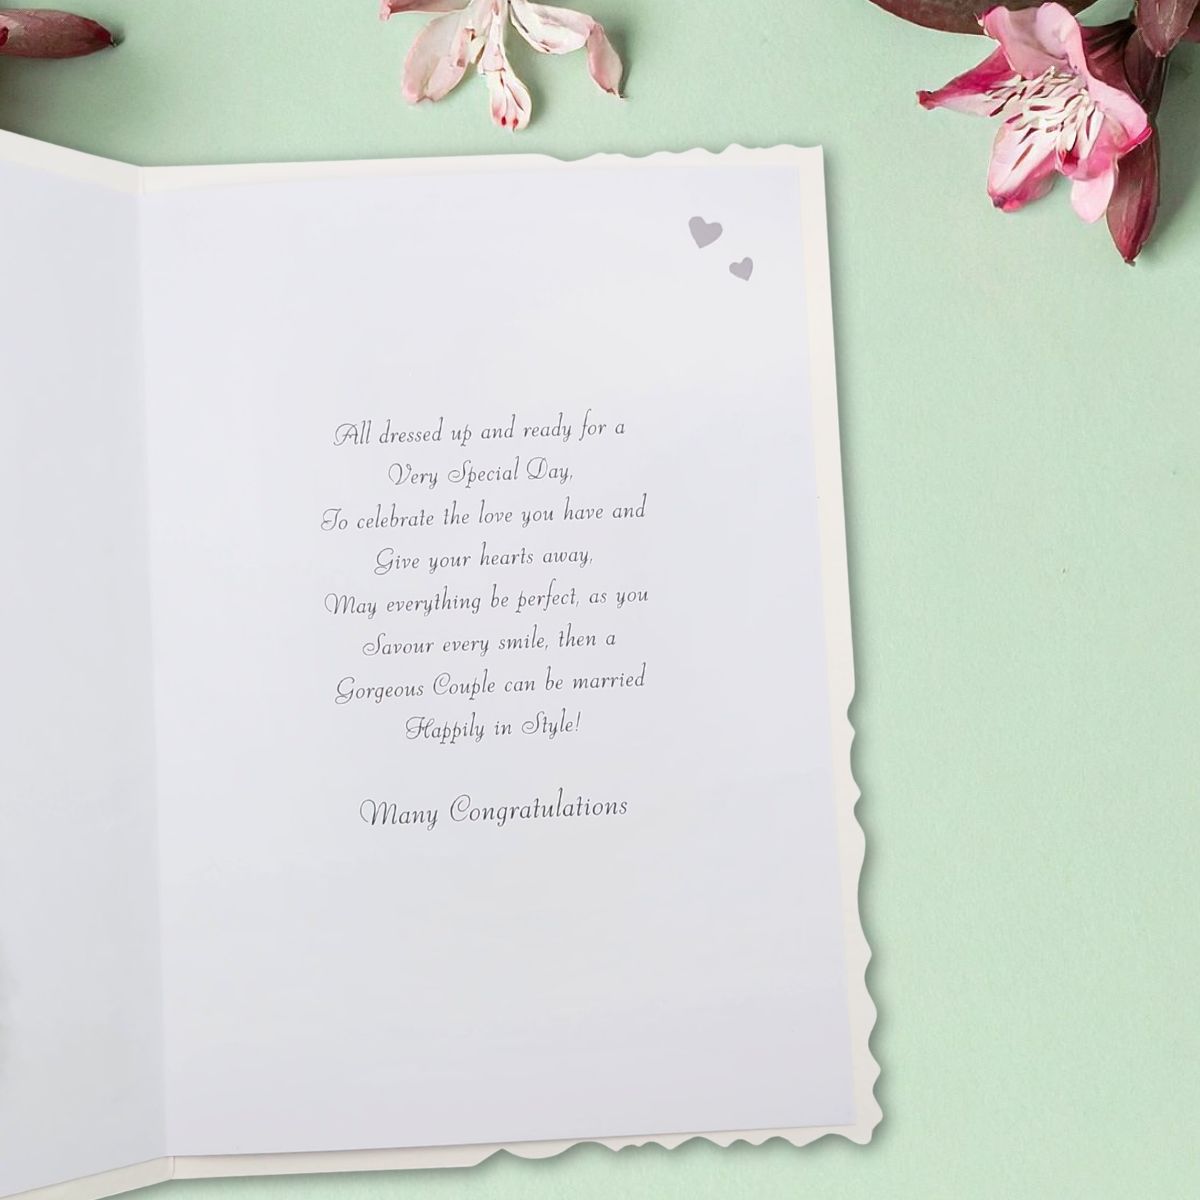 All dressed up and ready for a
Very Special Day,
To celebrate the love you have and
Give your hearts away,
May everything be perfect, as you
Savour every smile, then a
Gorgeous Couple can be married
Happily in Style!
Many Congratulations